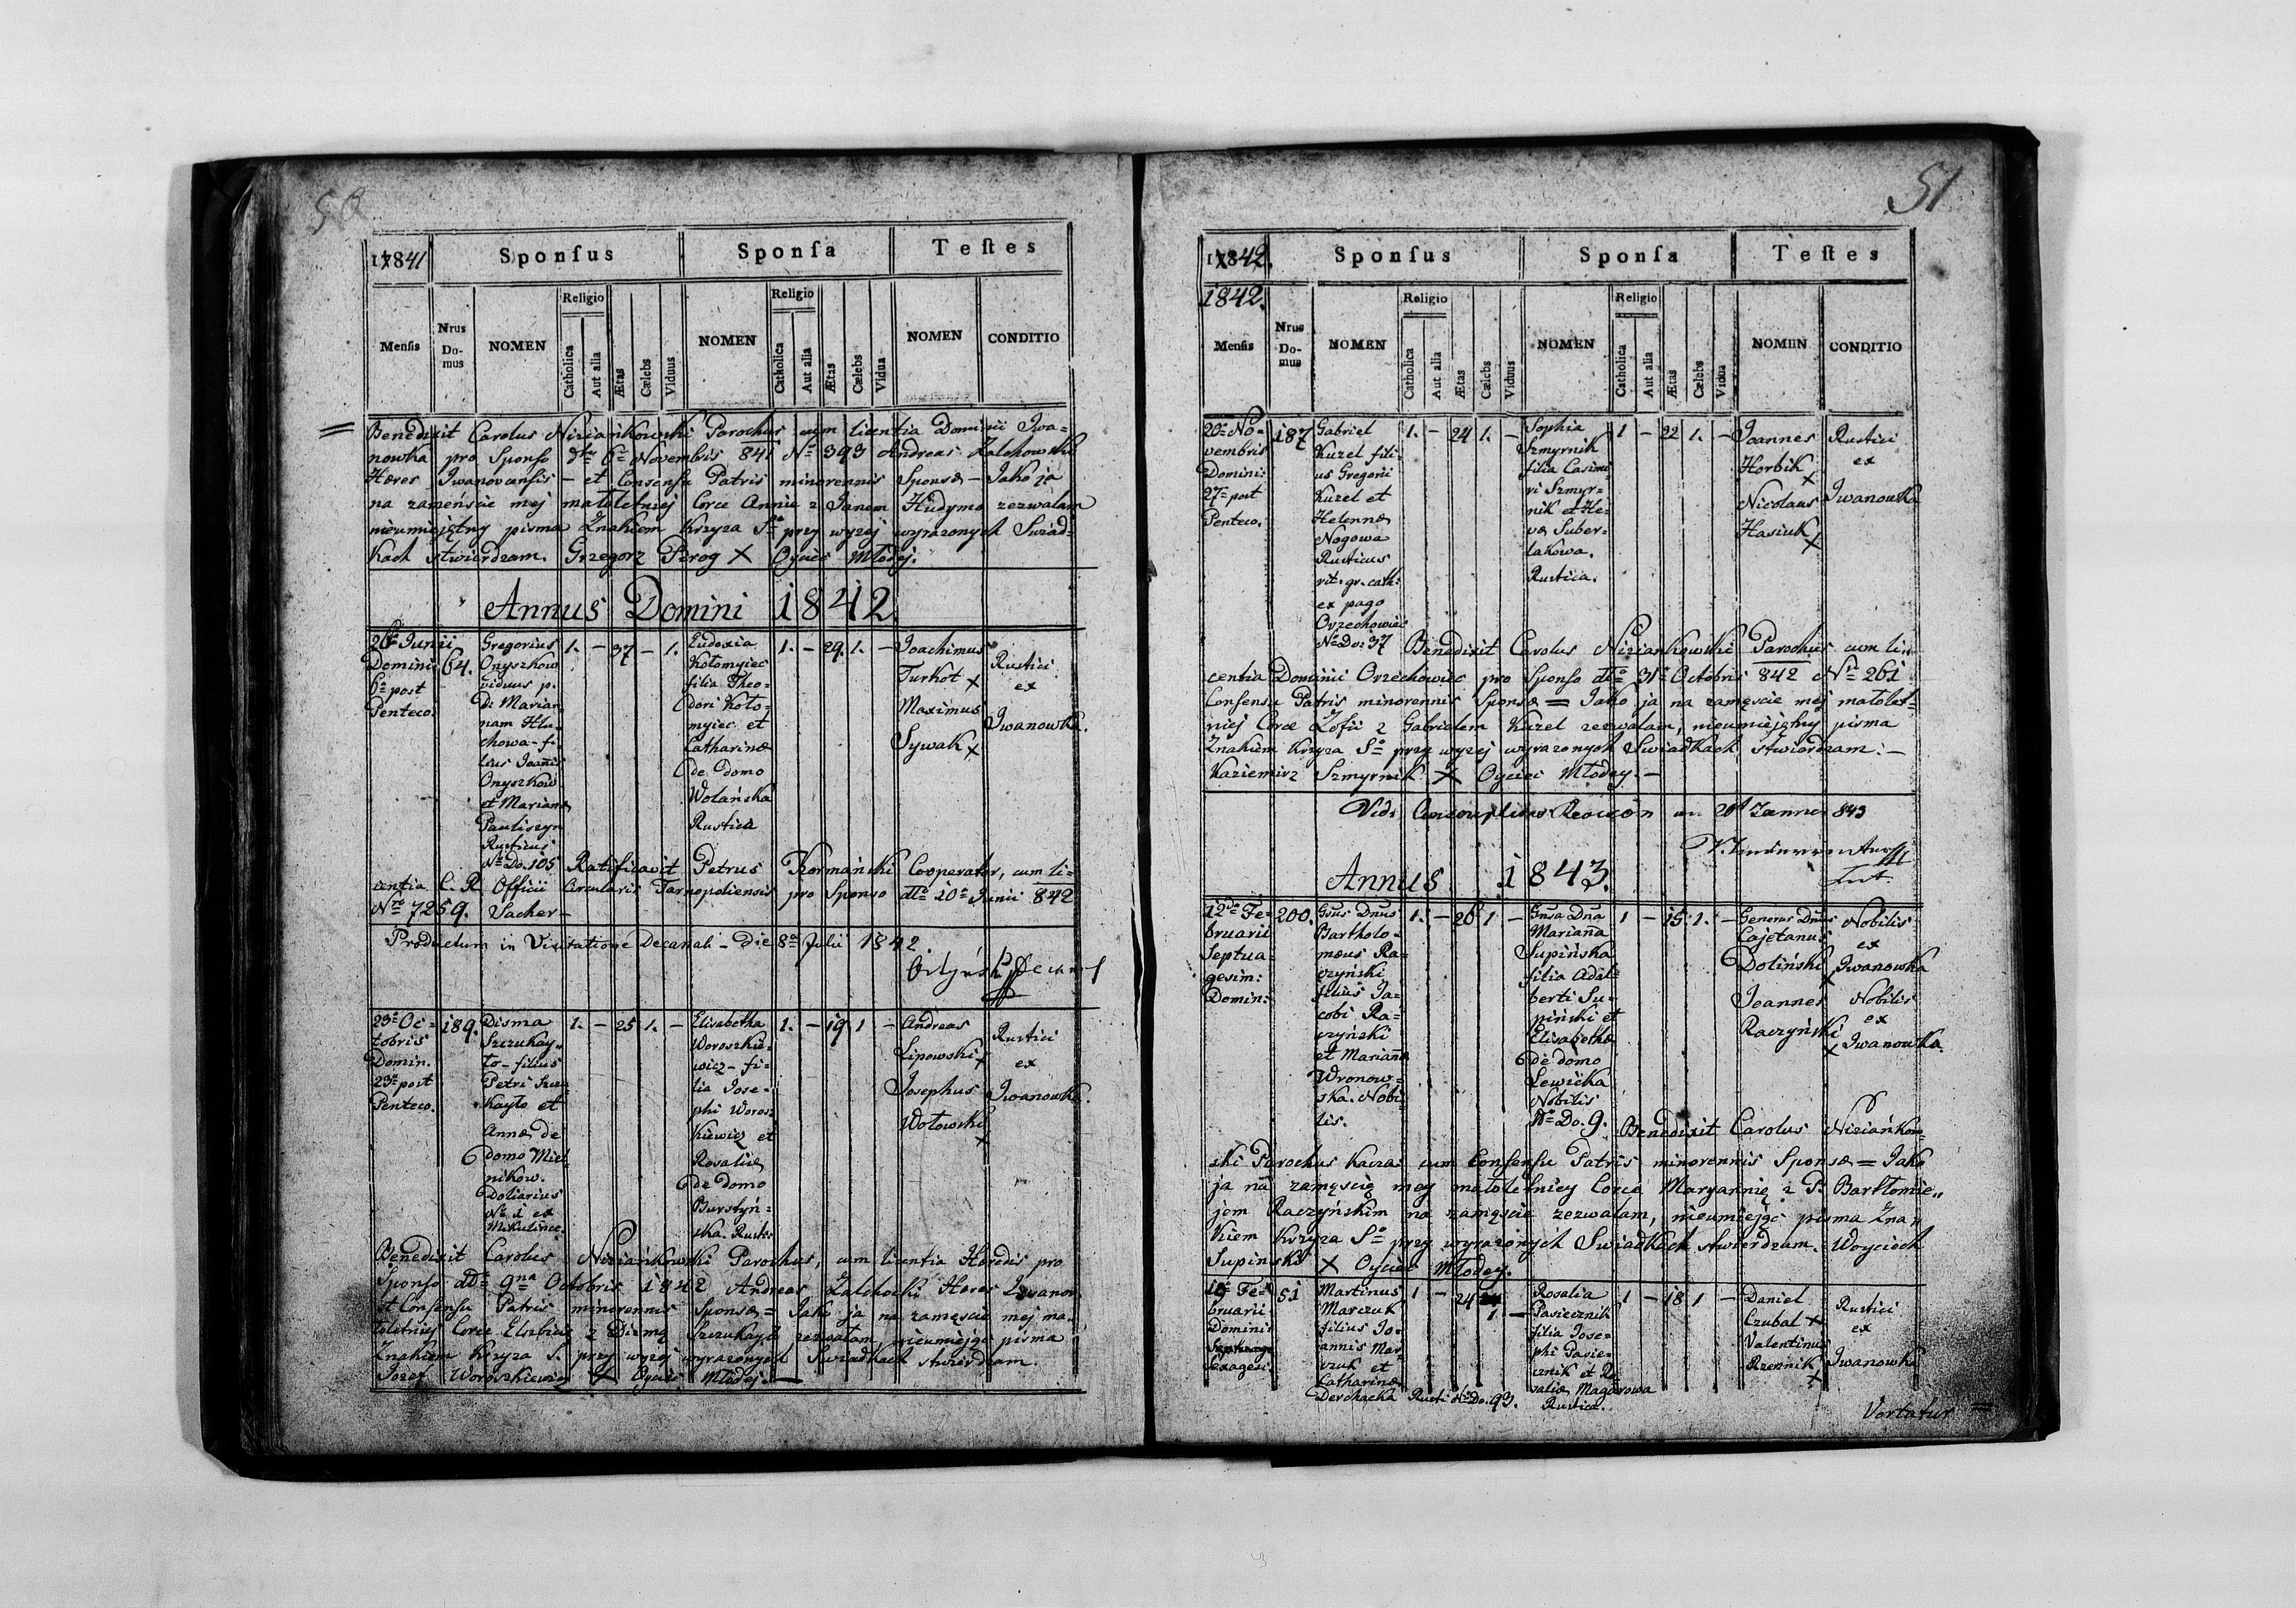 50
1841
Sponsus Sponsa Testes
Mensis Nrus Domus NOMEN Religio Catholica Aut alia Ætas Cælebs Viduus NOMEN Religio Catholica Aut alia Ætas Cælebs Vidua NOMEN CONDITIO
Benedixit Carolus Niziańkowski Parochus cum licentia Dominii Iwa=
nowka pro Sponso dto 6a Novembris 841 No 393 Andreas Zalchowski
Hæres Iwanovcensis – et Consensu Patris minorennis Sponsæ – Jako ja
na zamęście mej małoletniej Corce Annie z Janem Hudyma zezwalam
nieumiejętny pisma Znakiem Krzyza So przy wyzej wyrazonych Swiad=
kach stwierdzam. Grzegorz Pirog X Oyciec Młodej.
Annus Domini 1842
26a Junii
Dominic.
6a post
Penteco.
64.
Gregorius
Onyszkow
viduus p.
Marian
nam Hlu=
chowa – fi=
lius Joanis
Onyszkow
et Mariana
Pauliszyn
Rusticus
No Do. 105
1. – 37 – 1.
Eudoxia
Kołomyiec
filia Theo=
dori Koło=
myiec et
Catharinæ
de Domo
Wolańska
Rustica
1. – 29. 1. –
Joachimus
Turkot x
Maximus
Sywak x
Rustici
ex
Iwanowka.
Ratificavit Petrus Kormański Cooperator, cum li=
centia C. R. Officii Circularis Tarnopoliensis pro Sponso dto 10a Junii 842
Nro 7259. Sacher –
Productum in Visitatione Decanali – Die 8a Julii 1842.
23a Oc=
tobris
Domin.
23a post
Penteco.
189.
Disma
Szczukay=
to – filius
Petri Szczu
kayto et
Annæ de
domo Miel=
nikow.
Doliarius
No 1 ex
Mikulince.
1. – 25 1. –
Elisabetha
Woroszkie=
wicz – fi=
lia Jose=
phi Worosz
kiewicz et
Rosaliæ
de Domo
Bursztyń=
ska. Rusti
1. – 19 1 –
Andreas
Lipowski x
Josephus
Wołowski
x
Rustici
ex
Iwanowka.
Benedixit Carolus Niziańkowski Parochus, cum licentia Heredis pro
Sponso dto 9na Octobris 1842 Andreas Zalchocki Hæres Iwanow
et Consensu Patris minorennis Sponsæ = Jako ja na zamęscie mej ma=
łoletniej Corce Elzbiecie z Dizmą Szczukayto zezwalam, nieumiejąc pisma
Znakiem Krzyza S. przy wyzej wyrazonych Swiadkach stwierdzam.
Jozef Woroszkiewicz X Oyciec Młodej. –
51
1842.
Sponsus Sponsa Testes
1842.
Mensis Nrus Domus NOMEN Religio Catholica Aut alia Ætas Cælebs Viduus NOMEN Religio Catholica Aut alia Ætas Cælebs Vidua NOMEN CONDITIO
20a No=
vembris
Domini:
27a post
Penteco.
187
Gabriel
Kuzel fili=
us Gregorii
Kuzel et
Helennæ
Nogowa
Rusticus
rit. gr. cath:
ex pago
Orzechowiec
No Do: 37
1. – 24 1. –
Sophia
Szmyrnik
filia Casimi
ri Szmyr=
nik et He=
væ Suber=
lakowa.
Rustica.
1 – 22 1. –
Joannes
Horbik
x
Nicolaus
Hasiuk
x
Rustici
ex
Iwanowka
Benedixit Carolus Niziankowski Parochus cum li=
centia Dominii Orzechowiec pro Sponso dto 31a Octobris 842 No 261
Consensu Patris minorennis Sponsæ = Jako ja na zamęscie mej małolet=
niej Corce Zofii z Gabrielem Kuzel zezwalam, nieumiejętny pisma
Znakiem Krzyza So przy wyzej wyrazonych Swiadkach stwierdzam. –
Kazimirz Szmyrnik X Oyciec Młodey. –
843
Annus 1843.
12a Fe=
bruarii
Septua=
gesim:
Domin:
200.
Gsus Dnus
Bartholo=
mæus Ra=
czyński
filius Ja=
cobi Ra=
czyński
et Mariannæ
Wronow=
ska. Nobi=
lis.
1. – 26 1 –
Gnsa Dna
Marianna
Supińska
filia Adal=
berti Su=
piński et
Elisabethæ
de domo
Lewicka
Nobilis
No Do. 9.
1 – 15 1. –
Generus Dnus
Cajetanus
Doliński
x
Joannes
Raczyński
x
Nobilis
ex
Iwanowka
Nobilis
ex
Iwanowka.
Benedixit Carolus Niziańkow=
ski Parochus Kaczan. cum Consensu Patris minorennis Sponsæ = Jako
ja na zamęscię mey małoletniey Corce Maryannie z P. Bartłomie=
jem Raczyńskim na zamęscie zezwalam, nieumiejąc pisma Zna=
kiem Krzyza So przy wyrazonych Swiadkach stwierdzam. Woyciech
Supinski X Oyciec Młodey.
19a Fe=
bruarii
Dominic
Sexagesi.
51
Martinus
Marczuk
filius Jo=
annis Mar=
czuk et
Catharinæ
Derchacka Rusti No Do. 93.
1 – 24 1 –
Rosalia
Pasiecznik
filia Jose=
phi Pasie=
cznik et Ro
saliæ Magorowa
Rustica.
1 – 18 1 –
Daniel
Czubal x
Valentinus
Rzeznik
x
Rustici
ex
Iwanowka
Vertatur =